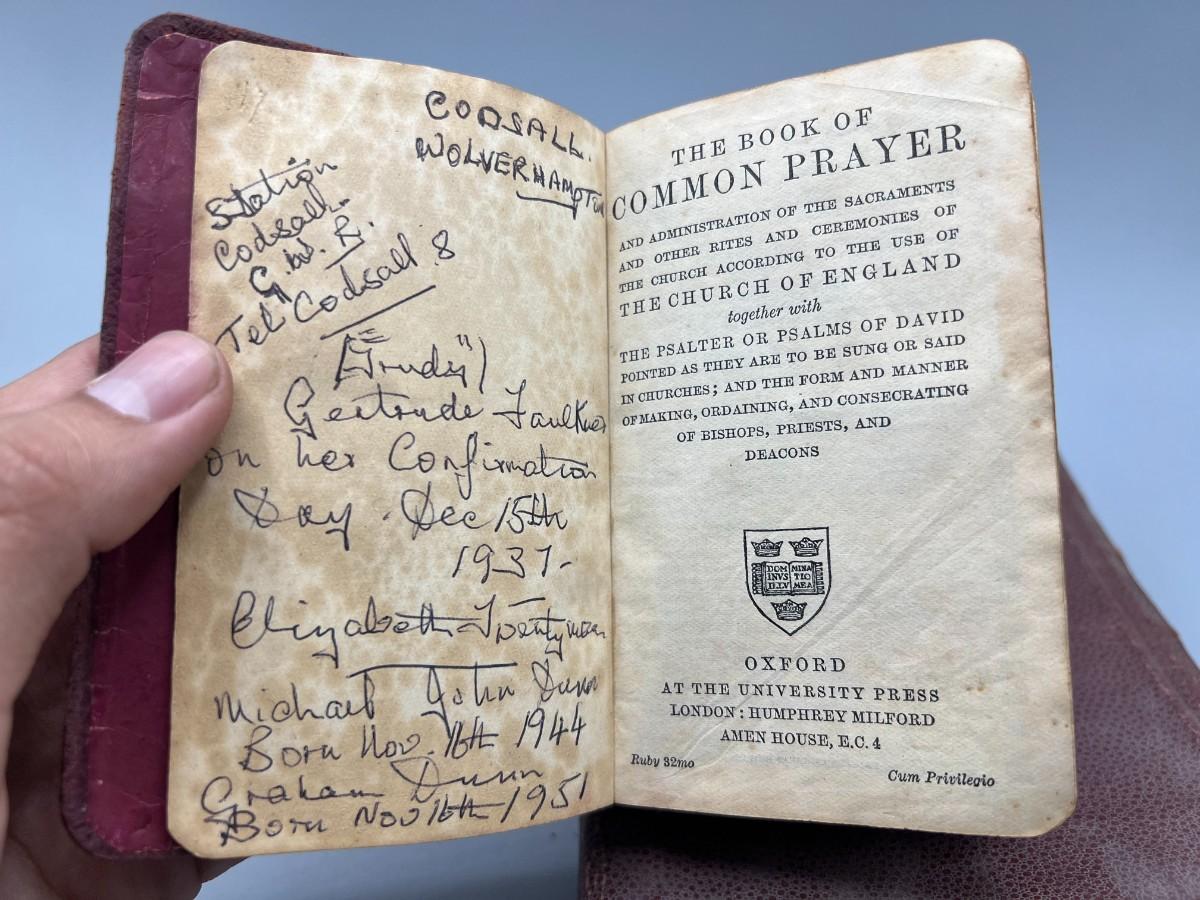 CODSALL.
WOLVERHAMPTON
Station
Codsall.
G.W.R.
Tel Codsall 8
("Trudy")
Gertrude Faulkner
on her Confirmation
Day. Dec 15th
1937-
Elizabeth
Michael John Dunn
Born Nov. 16th 1944
Graham Dunn
Born Nov 16th 1951
THE BOOK OF
COMMON PRAYER
AND ADMINISTRATION OF THE SACRAMENTS
AND OTHER RITES AND CEREMONIES OF
THE CHURCH ACCORDING TO THE USE OF
THE CHURCH OF ENGLAND
together with
THE PSALTER OR PSALMS OF DAVID
POINTED AS THEY ARE TO BE SUNG OR SAID
IN CHURCHES; AND THE FORM AND MANNER
OF MAKING, ORDAINING, AND CONSECRATING
OF BISHOPS, PRIESTS, AND
DEACONS
DOM MINA
INVS TIO
ILLV MEA
OXFORD
AT THE UNIVERSITY PRESS
LONDON: HUMPHREY MILFORD
AMEN HOUSE, E.C. 4
Ruby 32mo
Cum Privilegio